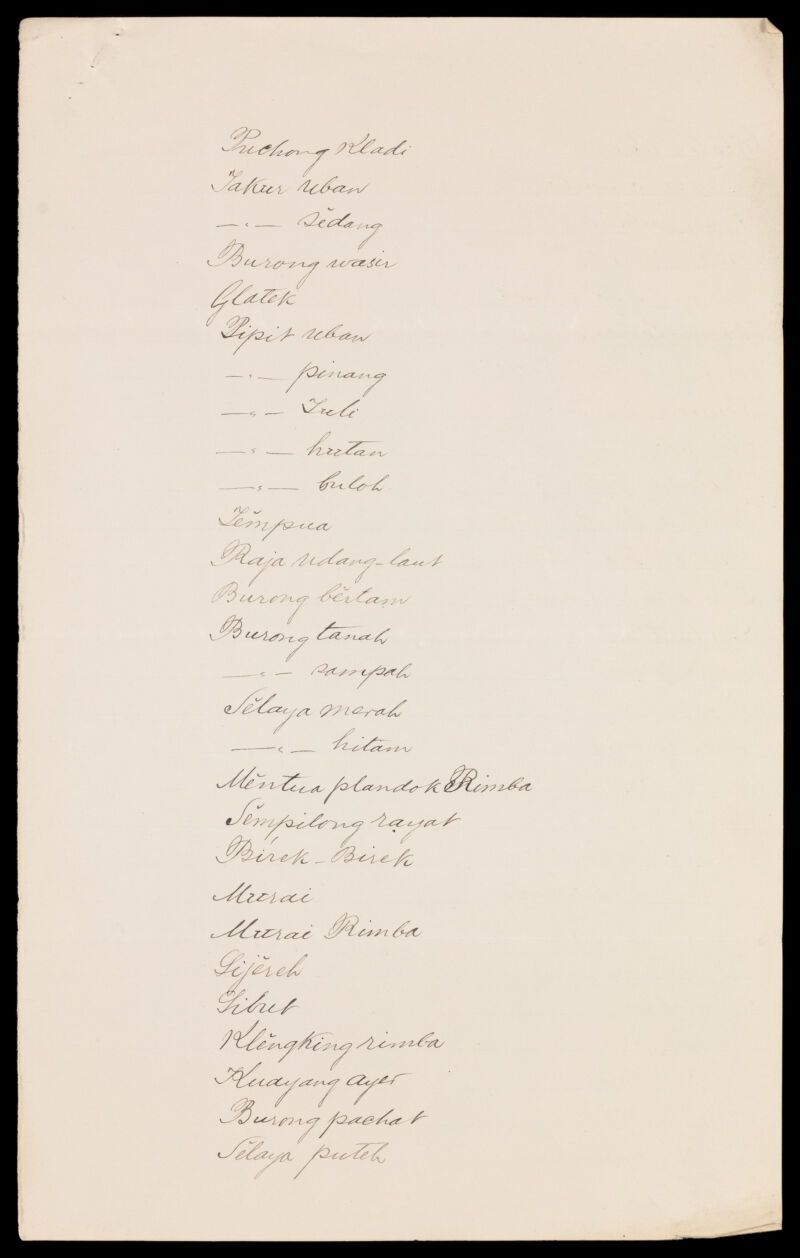 Puchong Kladi
Takur uban
— " — sĕdang
Burong wasir
Glatek
Pipit uban
— " — pinang
— " — Tuli
— " — hutan
— " — buloh
Tĕmpua
Raja udang-laut
Burong bĕrtam
Burong tanah
— " — sampah
Sĕlaya merah
— " — hitam
Mĕntua plandok Rimba
Sĕmpilong rayat
Birek-Birek
Murai
Murai Rimba
Sijĕreh
Sibut
Klĕngking rimba
Kuayang ayer
Burong pachat
Sĕlaya puteh